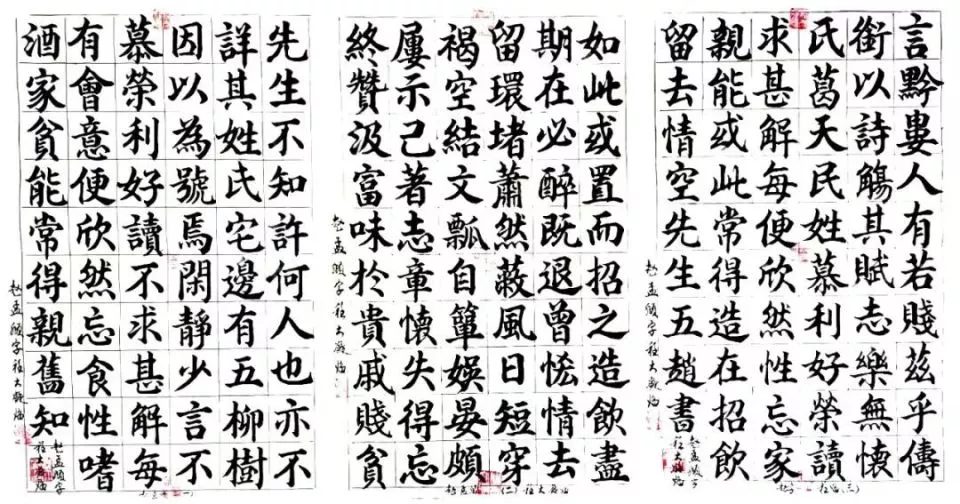 先生不知許何人也亦不
詳其姓氏宅邊有五柳樹
因以為號焉閑靜少言不
慕榮利好讀不求甚解每
有會意便欣然忘食性嗜
酒家貧能常得親舊知
如此或置而招之造飲盡
期在必醉既退曾恡情去
留環堵蕭然蔽風日短穿
褐空結文瓢自簞娛晏頗
屢示己著志章懷失得忘
終贊汲富味於貴戚賤貧
言黔婁人有若賤茲乎儔
銜以詩觴其賦志樂無懷
氏葛天民姓慕利好榮讀
求甚解每便欣然性忘家
親能或此常得造在招飲
留去情空先生五趙書